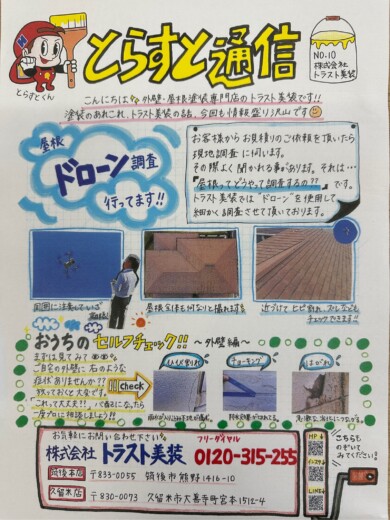 とらすと通信
NO.10
株式会社
トラスト美装
とらすとくん
こんにちは 外壁・屋根塗装専門店のトラスト美装です!!
塗装のあれこれ、トラスト美装の話、今回も情報盛り沢山です
屋根
ドローン調査
行ってます!!
お客様からお見積りのご依頼を頂いたら
現地調査に伺います。
その際よく聞かれる事があります。それは…
『屋根ってどうやって調査するの??』です。
トラスト美装では"ドローン"を使用して
細かく調査させて頂いております。
周囲に注意していざ
屋根全体も何なりと撮れます
近づけてヒビ割れ、ズレなども
チェックできます!!
おうちのセルフチェック!! ～外壁編～
まずは見てみて
ご自宅の外壁に右のような
症状ありませんか??
放っておくと大変です。
これって大丈夫?
一度プロに相談しましょう!!
check
ひび割れ
チョーキング
はがれ
お気軽にお問い合わせ下さい
株式会社トラスト美装
フリーダイヤル
0120-315-255
筑後本店
〒833-0055 筑後市熊野1416-10
久留米店
〒830-0073 久留米市大善寺町宮本1512-4
HP
インスタ
LINE
こちらも
のぞいて
みてください!